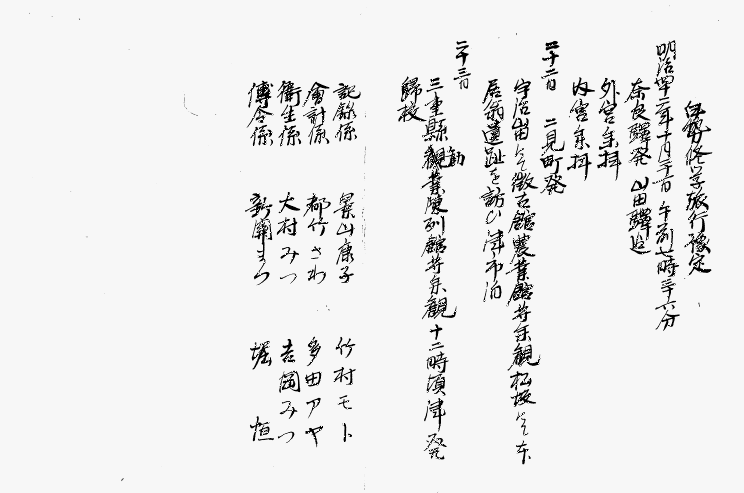 伊勢修学旅行豫定
明治四十二年十月二十一日午前七時三十六分
奈良驛発山田驛迄
外宮参拝
内宮参拝
二十二日 二見町発
宇治山田ニテ徴古館農業館等参観松坂ニテ本
居翁遺趾を訪ひ津市泊
二十三日
三重縣勧業陳列館等参観十二時頃津発
歸校
記録係 景山康子 竹村モト
會計係 都竹さわ 多田アヤ
衛生係 大村みつ 吉岡みつ
傳令係 新開まつ 堀 恒